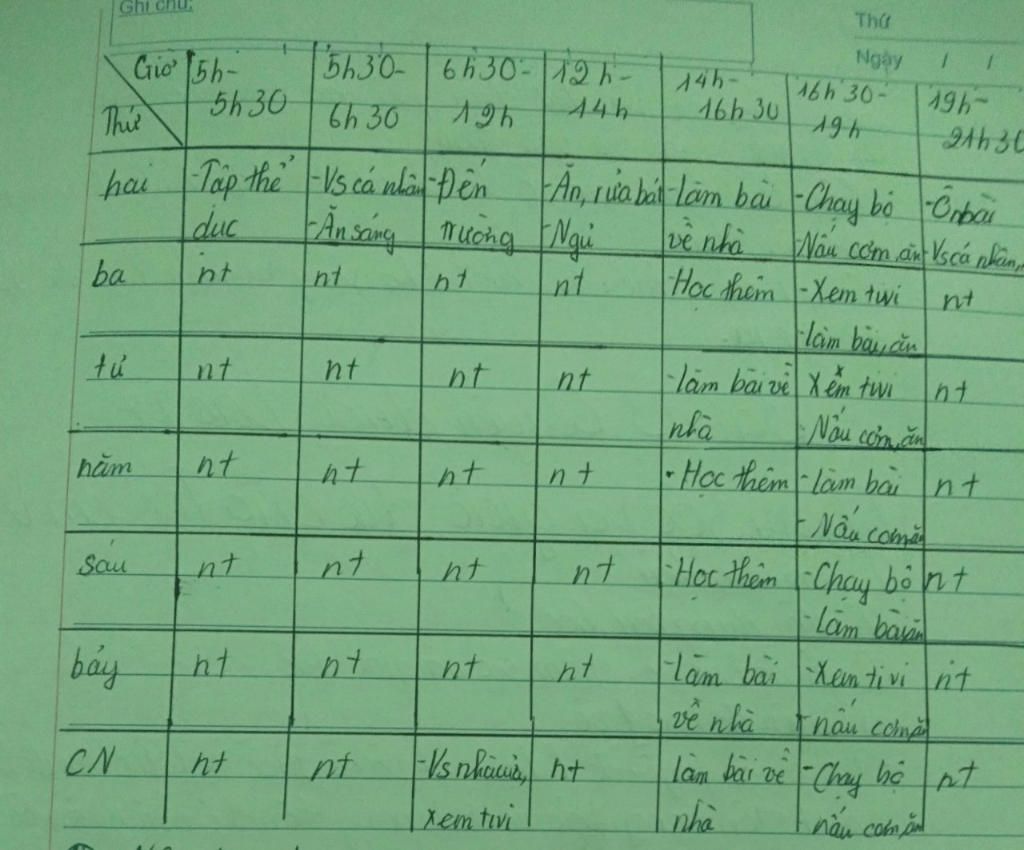 Ghi chú:
Thứ
Ngày / /
Giờ
Thứ
5h-
5h30
5h30-
6h30
6h30-
12h
12h-
14h
14h-
16h30
16h30-
19h
19h-
21h30
hai
-Tập thể
dục
-Vs cá nhân
-Ăn sáng
-Đến
trường
-Ăn, rửa bát
-Ngủ
-làm bài
về nhà
-Chạy bộ
Nấu cơm, ăn
-Ôn bài
-Vs cá nhân,
ba
nt
nt
nt
nt
-Học thêm
-Xem tivi
-làm bài, ăn
nt
tư
nt
nt
nt
nt
-làm bài về
nhà
Xem tivi
-Nấu cơm, ăn
nt
năm
nt
nt
nt
nt
-Học thêm
-làm bài
-Nấu cơm ăn
nt
sáu
nt
nt
nt
nt
-Học thêm
-Chạy bộ
-làm bài, ăn
nt
bảy
nt
nt
nt
nt
-làm bài
về nhà
-Xem tivi
nấu cơm ăn
nt
CN
nt
nt
-Vs nhà cửa,
xem tivi
nt
làm bài về
nhà
-Chạy bộ
nấu cơm, ăn
nt